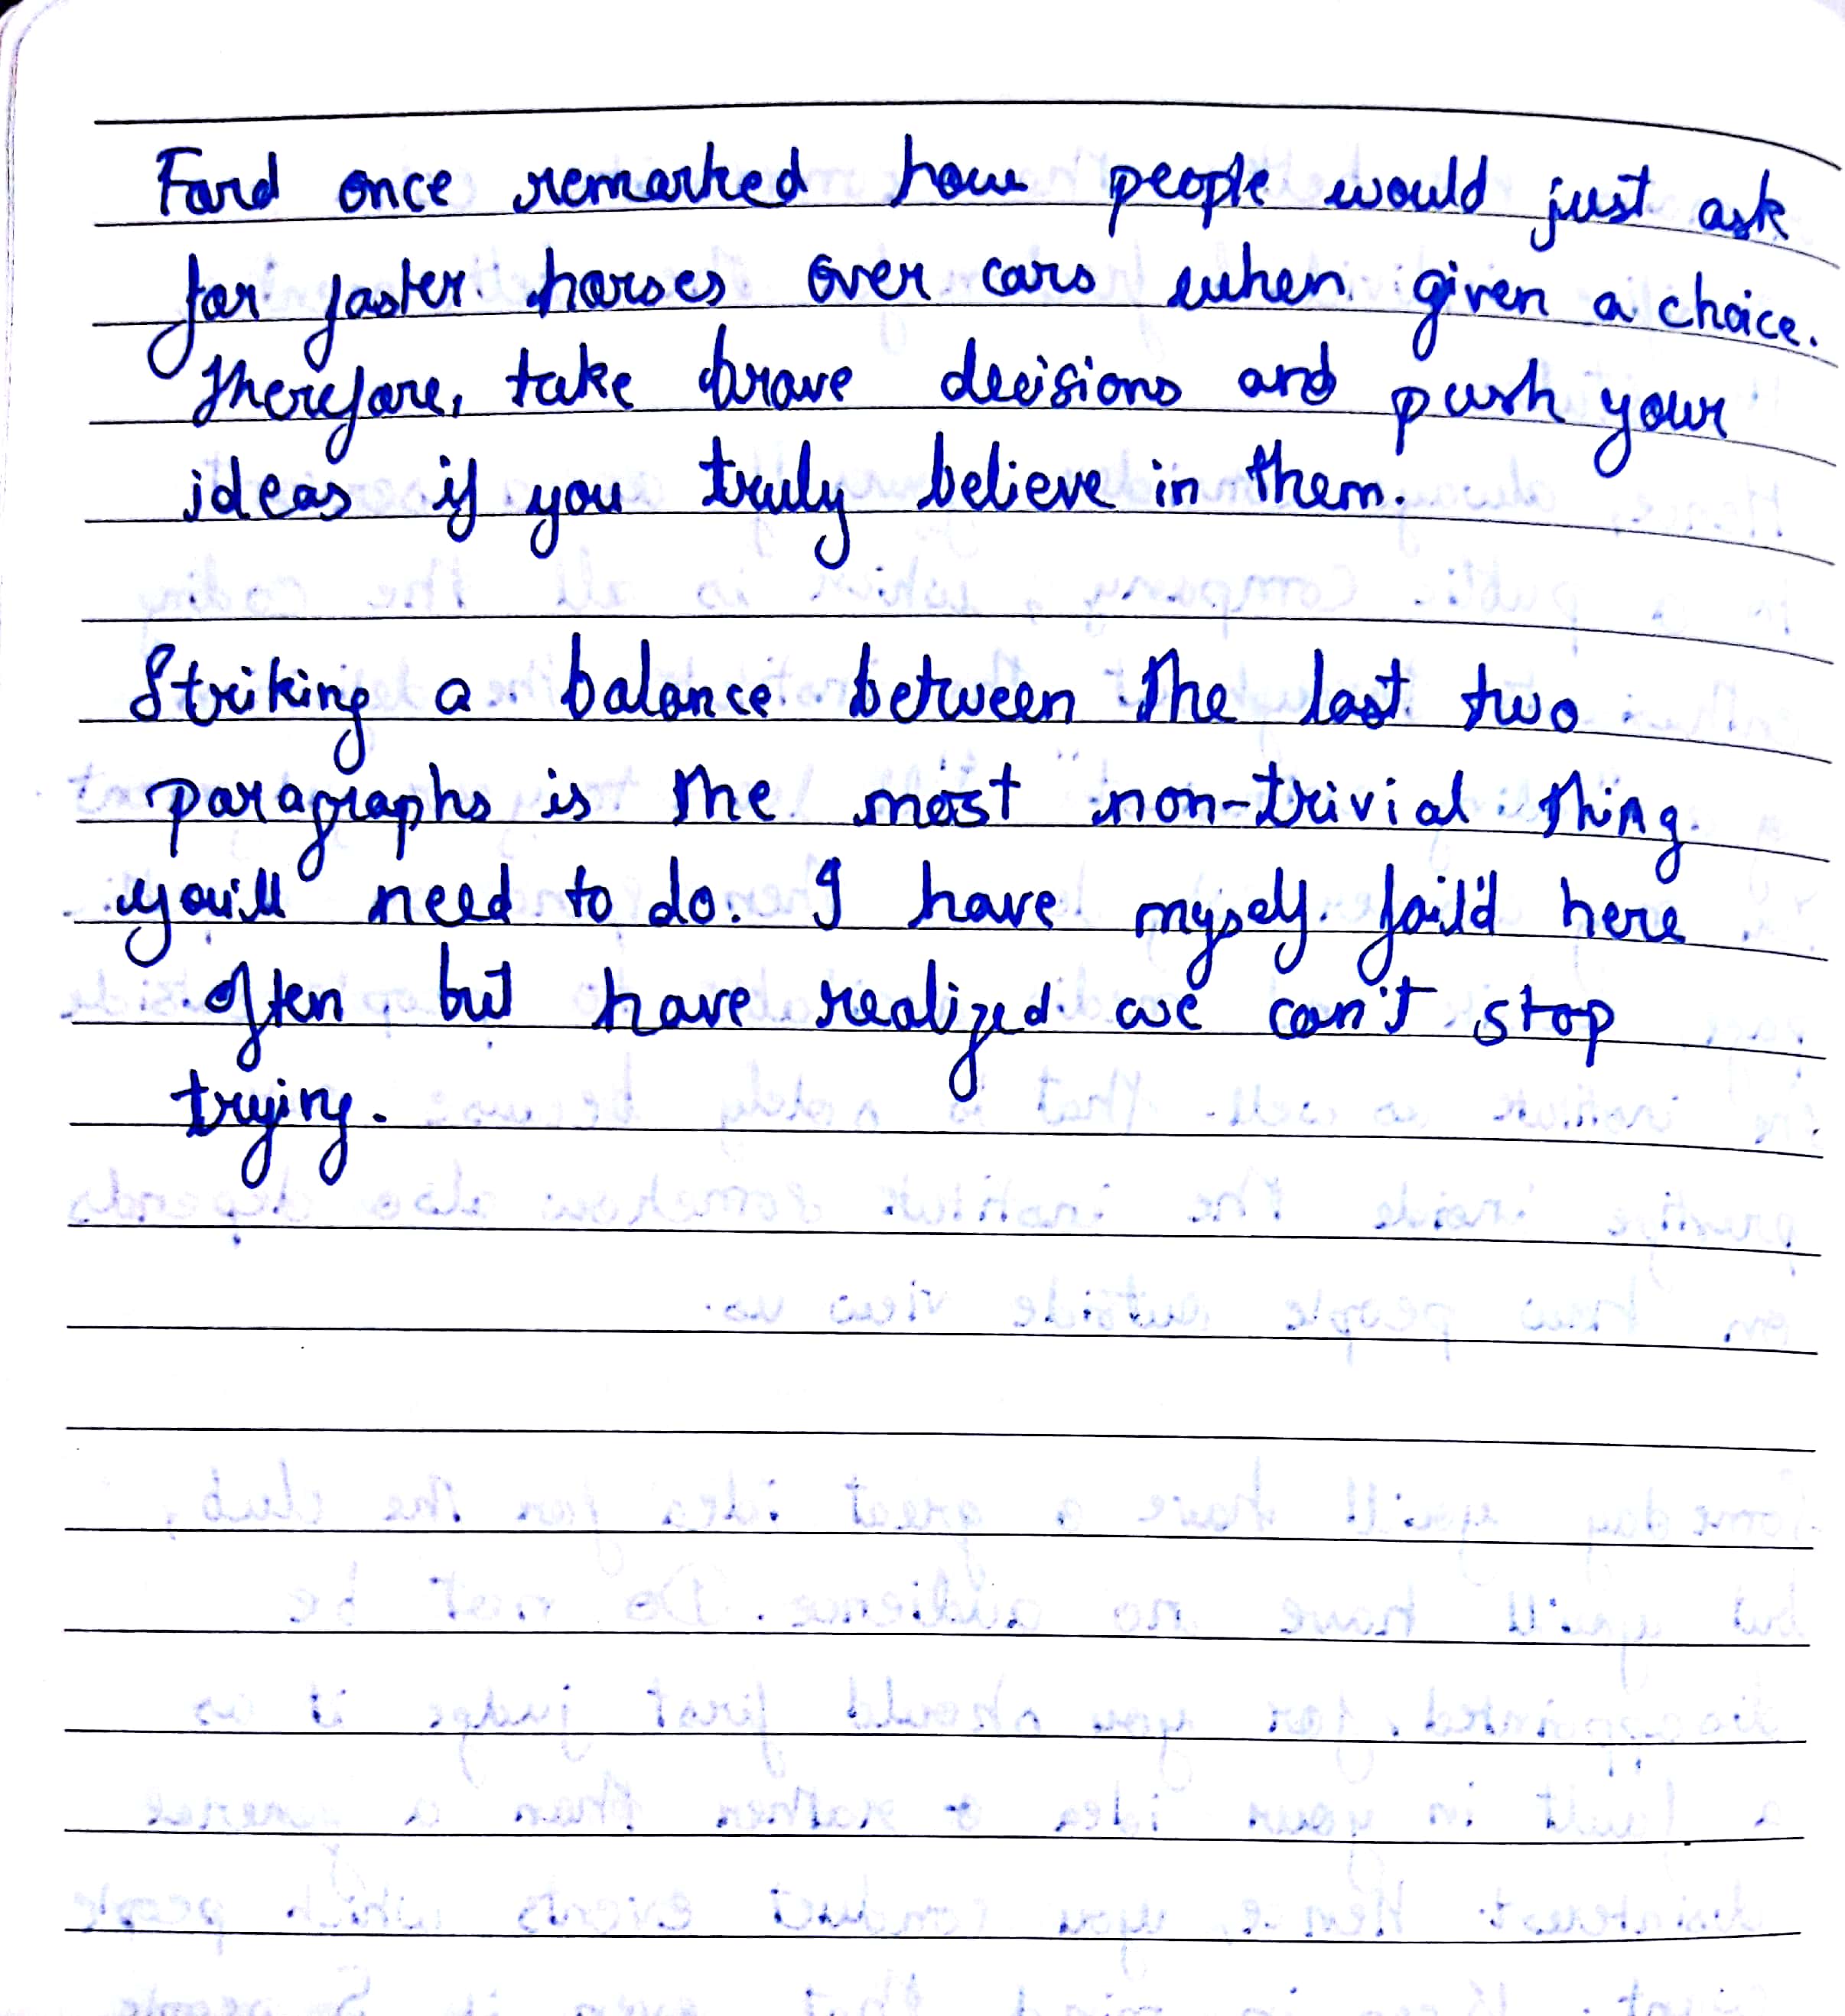 Ford once remarked how people would just ask
for faster horses over cars when given a choice.
Therefore, take brave decisions and push your
ideas if you truly believe in them.
Striking a balance between the last two
paragraphs is the most non-trivial thing
you'll need to do. I have myself fail'd here
often but have realized we can't stop
trying.